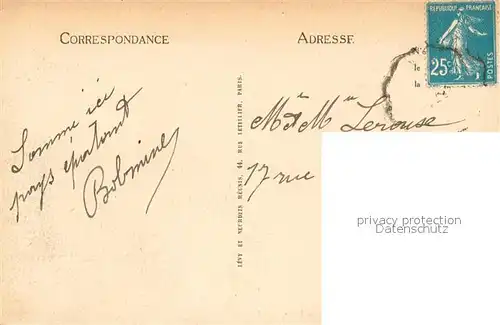 CORRESPONDANCE
ADRESSE
REPUBLIQUE FRANÇAISE
25c
POSTES
le
la
Somme ici
pays épatant
LÉVY ET NEURDEIN RÉUNIS, 44, RUE LETELLIER, PARIS.
Mr et Mme Lerouse
17 rue
privacy protection
Datenschutz